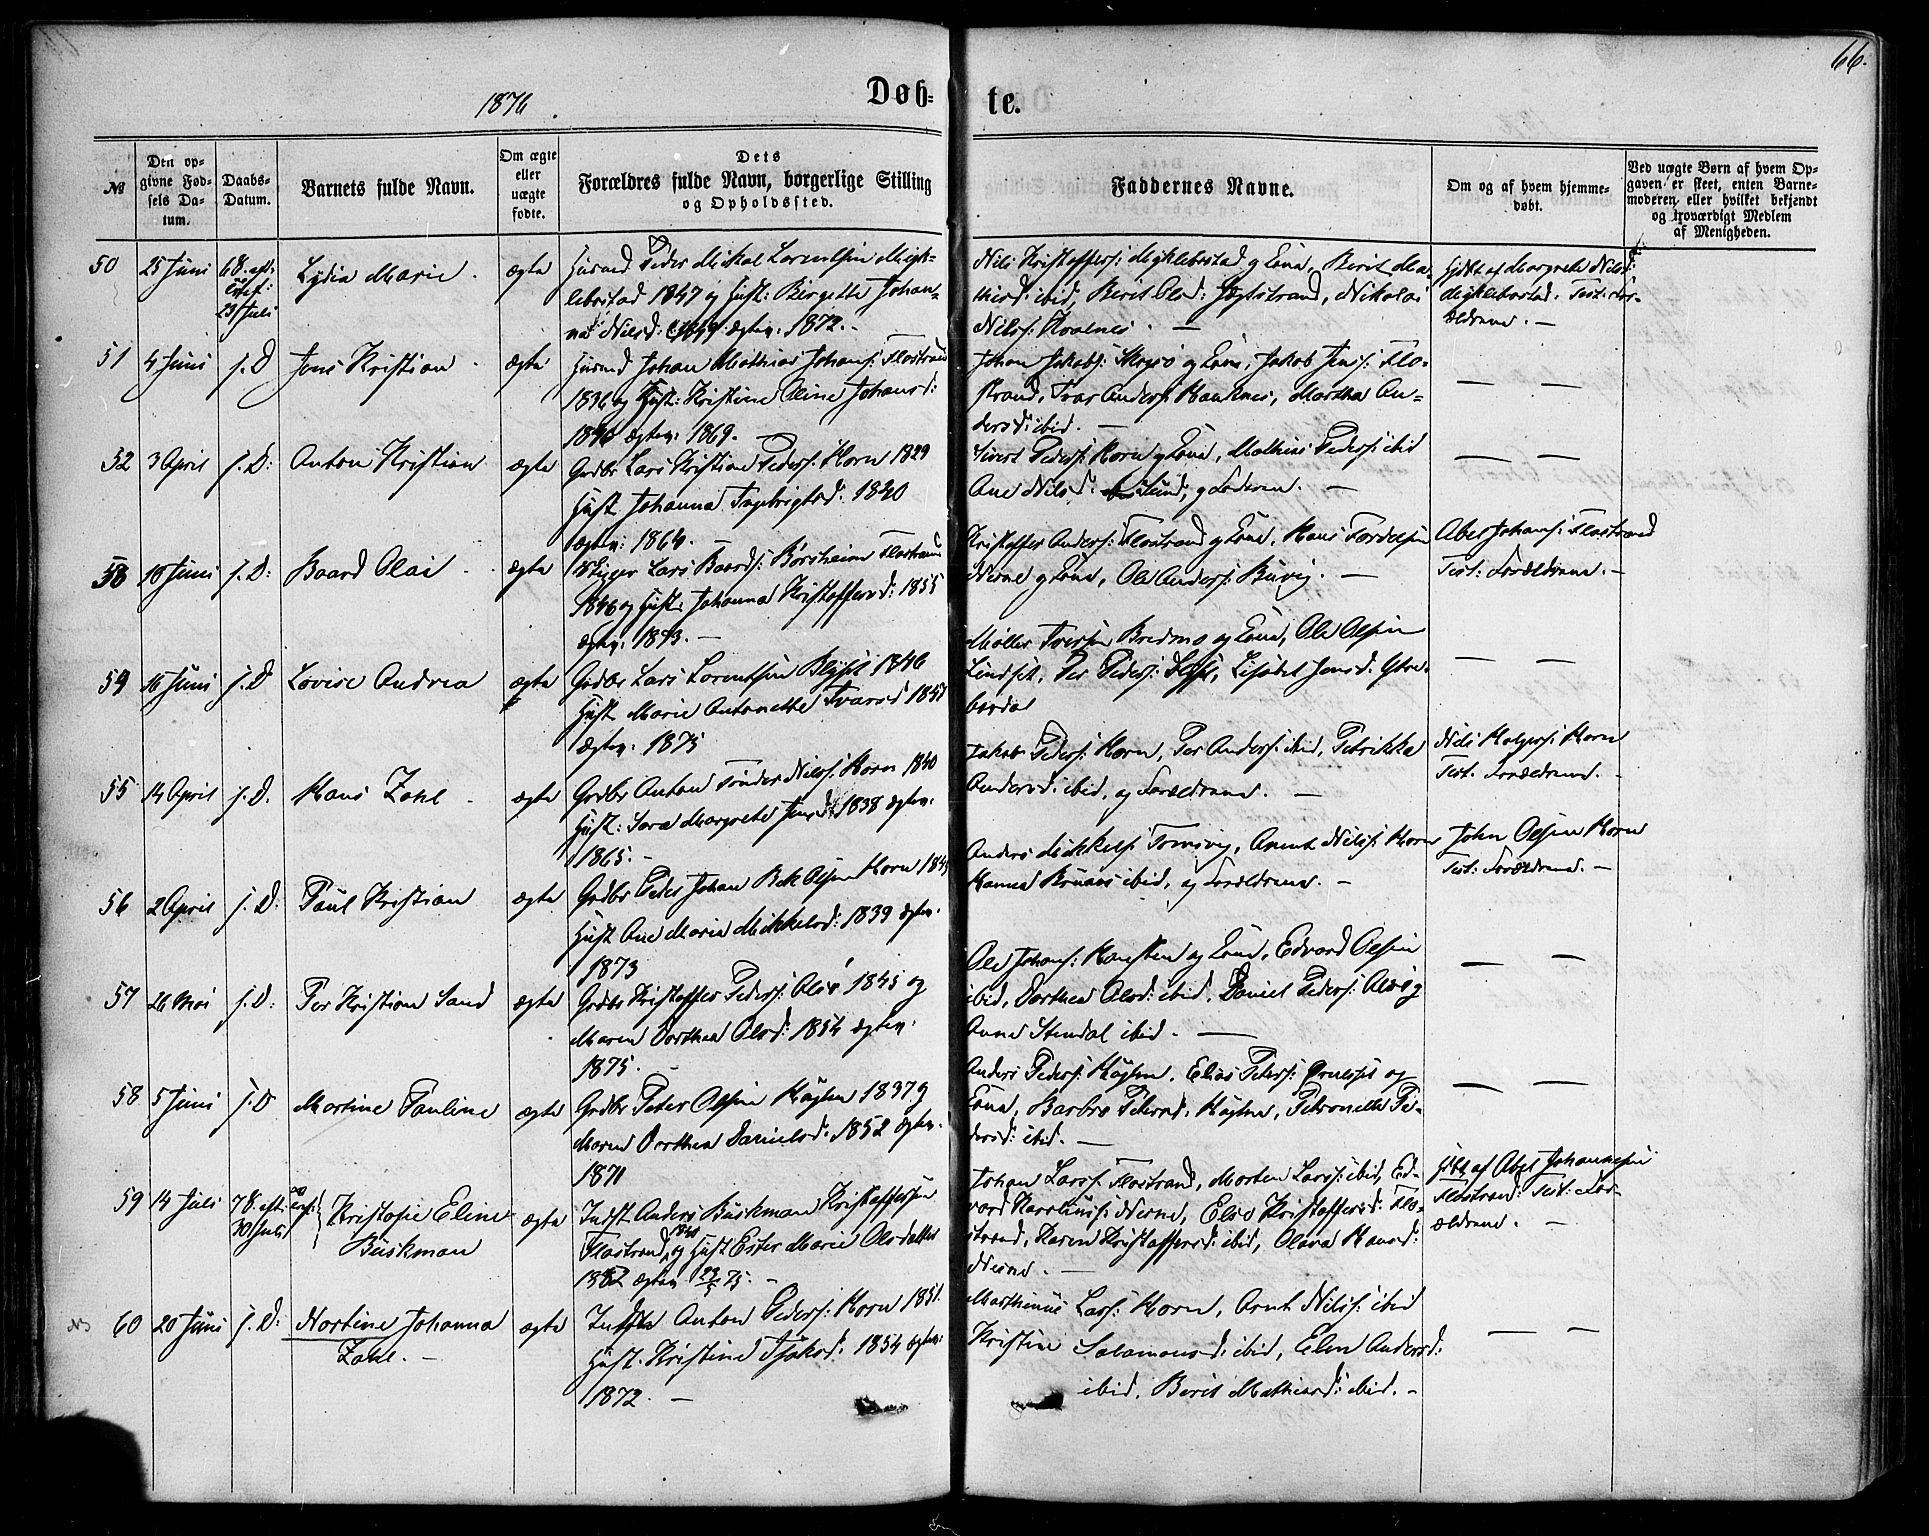 66.
1876
Døb-
te.
№
Den op-
givne Fød-
sels Da-
tum.
Daabs-
Datum.
Barnets fulde Navn.
Om ægte
eller
uægte
fødte.
Dets
Forældres fulde Navn, borgerlige Stilling
og Opholdssted.
Faddernes Navne.
Om og af hvem hjemme-
døbt.
Ved uægte Børn af hvem Op-
gaven er skeet, enten Barne-
moderen eller hvilket bekjendt
og troværdigt Medlem
af Menigheden.
50 25 Juni 6 S. eft. Lydia Marie ægte Husmd Peder Mikal Lorentsen Mykl-
23 Juli
lebostad 1847 og Hust: Birgette Johan-
na Nilsd: 1849 ægtev. 1872. -
Nils Kristoffers: Myklebostad og Kone, Berit Ma-
thisd: ibid, Berit Olsd: Hægtstrand, Nikolai
Nilss:
Hjdbt af Margrete Nilsd:
Myklebostad. Test: For-
ældrene. -
51 4 Juni s. D Jens Kristian ægte Husmd Johan Mathias Johans: Flostrand
1836 og Hust: Kristine Oline Johansd:
ægtev: 1869. -
Johan Jakobs: og Kone, Jakob Jenss: Flo-
strand, Ivar Anders: Hauknes, Martha An-
dersd: ibid. -
52 3 April s. D: Anton Kristian ægte Grdbr Lars Kristian Peders: Horn 1829
Hust Johanna Ingebrigtsd: 1840
ægtev: 1864.
Sivert Peders: Horn og Kone, Mathius Peders: ibid
Ane Nilsd: og Faderen. -
53 18 Juni s. D: Baard Olai ægte Lars Baards: Borsheim Flostrand
1846 og Hust: Johanna Kristoffersd: 1855
ægtev: 1873. -
Kristoffer Anders: Flostrand og Kone, Hans Fordelsen
Nerne og Kone, Ole Anders: Buvig. -
Abel Johans: Flostrand
Test: Forældrene. -
54 16 Juni s. D Lovise Andrea ægte Grdbr Lars Lorentsen 1846
Hust Marie Antonette Ivarsd 1857
ægtev. 1875
Møller Iversen Bredmo og Kone, Ole Olsen
Lindset, Per Peders: Lisabet Jensd: Ytre-
55 14 April s. D. Hans Zahl ægte Grdbr Anton Tønder Nilss: Horn 1840
Hust: Sara Margrete Jensd: 1838 ægtev:
1865. -
Jakob Peders: Horn, Per Anders: ibid, Petrikka
Andersd: ibid, og Forældrene. -
Nils Holgers: Horn
Test: Forældrene. -
56 2 April s. D: Paul Kristian ægte Grdbr Peder Johan Bek Olsen Horn 1845
Hust Ane Maria Mikkelsd: 1839 ægtev.
1873
Anders Mikkels: Arent Nilss: Horn
Hanna ibid, og Forældrene. -
John Olsen Horn
Test: Forældrene. -
57 26 Mai s. D: Per Kristian Sand ægte Grdbr Kristoffer Peders: 1845 og
Maren Dorthea Olsd: 1854 ægtev:
1875.
Ole Johans: og Kone, Edvard Olsen
ibid, Dorthea Olsd: ibid, Daniel Peders:
Anna Stendal ibid. -
58 5 Juni s. D Martine Pauline ægte Grdbr Peter Olsen 1837 og
Maren Dorthea Danielsd: 1852 ægtev.
1871
Anders Peders: Elias Peters: og
Kone, Barbro Petersd: Petronelle Pe-
dersd: ibid. -
59 14 Juli 7 S. eft. Kristofie Eline
30 Juli
Buskman ægte Indst Anders Buskman Kristoffersen
Flostrand, og Hust Ester Marie Olsdatter
1852 ægtev. 75. -
Johan Larss: Flostrand, Morten Larss: ibid, Ed-
vard Karolius: Nerne, Elso Kristoffersd: Flo-
strand, Karen Kristoffersd: ibid, Olava Hansd:
Nerne. -
Hjdbt af Abel Johannesen
Flostrand. Test: For-
ældrene. -
60 20 Juni s. D: Nortine Johanna
Zahl. - ægte Indst Anton Peders: Horn 1851.
Hust. Kristine Isaksd: 1854 ægtev:
1872. -
Marthinus Larss: Horn, Arnt Nilss: ibid
Kristine Salamonsd: ibid, Elen Andersd:
ibid, Berit Mathiasd: ibid. -